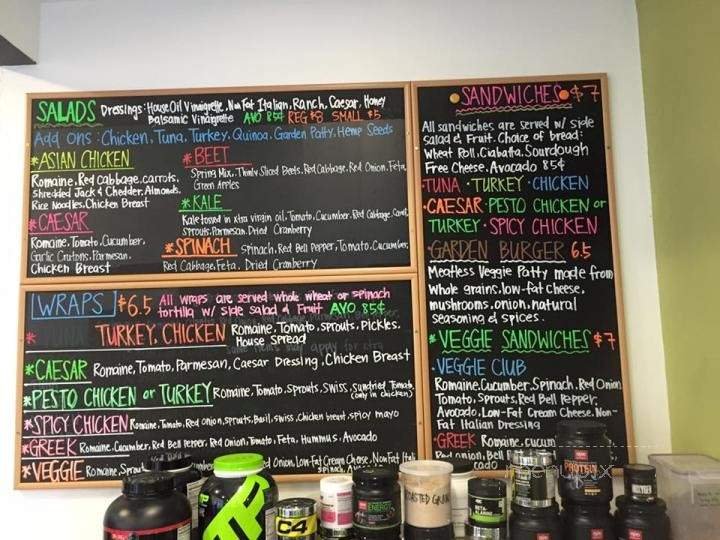 SALADS Dressings: House Oil Vinaigrette, Non Fat Italian, Ranch, Caesar, Honey
Balsamic Vinaigrette AVO 85¢ REG $8 SMALL $5
Add ons: Chicken, Tuna, Turkey, Quinoa, Garden Patty, Hemp Seeds
*ASIAN CHICKEN
Romaine, Red Cabbage, carrots,
Shredded Jack & Chedder, Almonds,
Rice Noodles, Chicken Breast
*CAESAR
Romaine, Tomato, Cucumber,
Garlic Crutons, Parmesan,
Chicken Breast
*BEET
Spring Mix, Thinly Sliced Beets, Red Cabbage, Red Onion, Feta,
Green Apples
*KALE
Kale tossed in xtra virgin oil, Tomato, Cucumber, Red Cabbage, Carrot,
Sprouts, Parmesan, Dried Cranberry
*SPINACH Spinach, Red Bell Pepper, Tomato, Cucumber,
Red Cabbage, Feta, Dried Cranberry
WRAPS $6.5 All wraps are served whole wheat or spinach
tortilla w/ side Salad & Fruit AVO 85¢
* TURKEY, CHICKEN Romaine, Tomato, Sprouts, Pickles,
House Spread
*CAESAR Romaine, Tomato, Parmesan, Caesar Dressing, Chicken Breast
*PESTO CHICKEN or TURKEY Romaine, Tomato, Sprouts, Swiss, Sundried Tomato
(only in chicken)
*SPICY CHICKEN Romaine, Tomato, Red onion, sprouts, Basil, swiss, Chicken breast, spicy mayo
*GREEK Romaine, Cucumber, Red Bell Pepper, Red Onion, Tomato, Feta, Hummus, Avocado
*VEGGIE Romaine, Onion, Low-Fat Cream Cheese, Non Fat
Spinach, Avocado
SANDWICHES $7
All sandwiches are served w/ side
salad & Fruit. Choice of bread:
Wheat Roll, Ciabatta, Sourdough
Free Cheese, Avocado 85¢
·TUNA ·TURKEY ·CHICKEN
·CAESAR ·PESTO CHICKEN or
TURKEY ·SPICY CHICKEN
·GARDEN BURGER 6.5
Meatless Veggie Patty made from
Whole grains, low-fat cheese,
mushrooms, onion, natural
seasoning & spices.
*VEGGIE SANDWICHES $7
·VEGGIE CLUB
Romaine, Cucumber, Spinach, Red Onion
Tomato, Sprouts, Red Bell Pepper,
Avocado, Low-Fat Cream Cheese, Non-
Fat Italian Dressing
·GREEK Romaine, cucum
Red onion, Bell
cado
MP
C4
ENERGY
ROASTED
BETA-ALANINE
PROTEIN
menupix